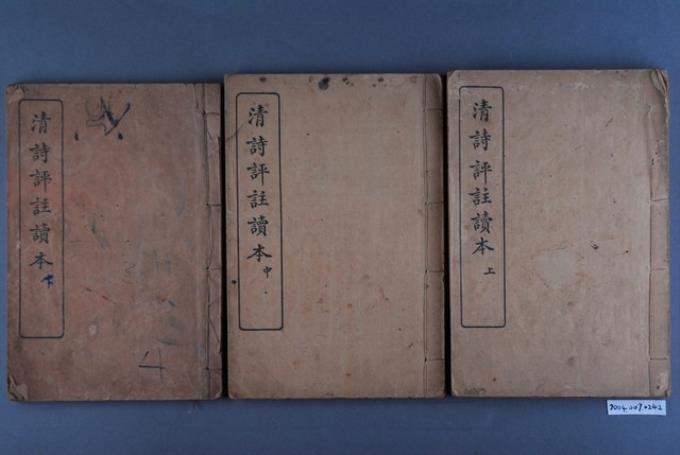 清詩評註讀本 上
清詩評註讀本 中
清詩評註讀本
4
2004.007.0242